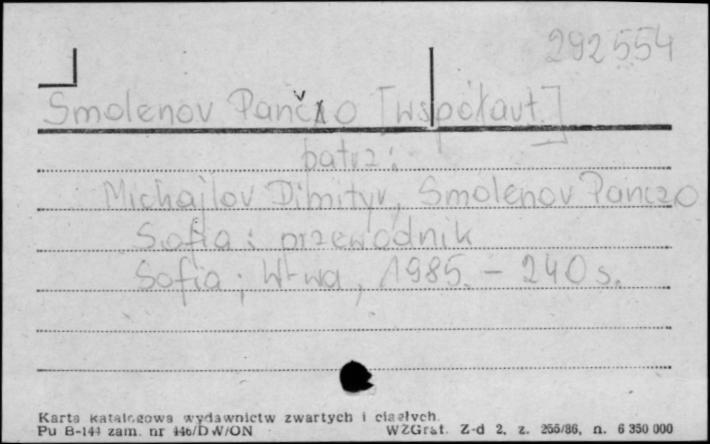 292554
Smolenov Pančo [współaut.]
patrz:
Michajlov Dimityr, Smolenov Panczo
Sofia: przewodnik
Sofia; W-wa, 1985. - 240 s.
Karta katalogowa wydawnictw zwartych i ciągłych.
Pu B-144 zam. nr 446/DW/ON WZGraf. Z-d 2, z. 255/86, n. 6 350 000